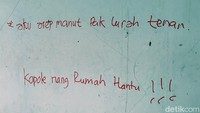 aku arep manut Pak Lurah tenan.
Kapok nang Rumah Hantu !!!
detikcom